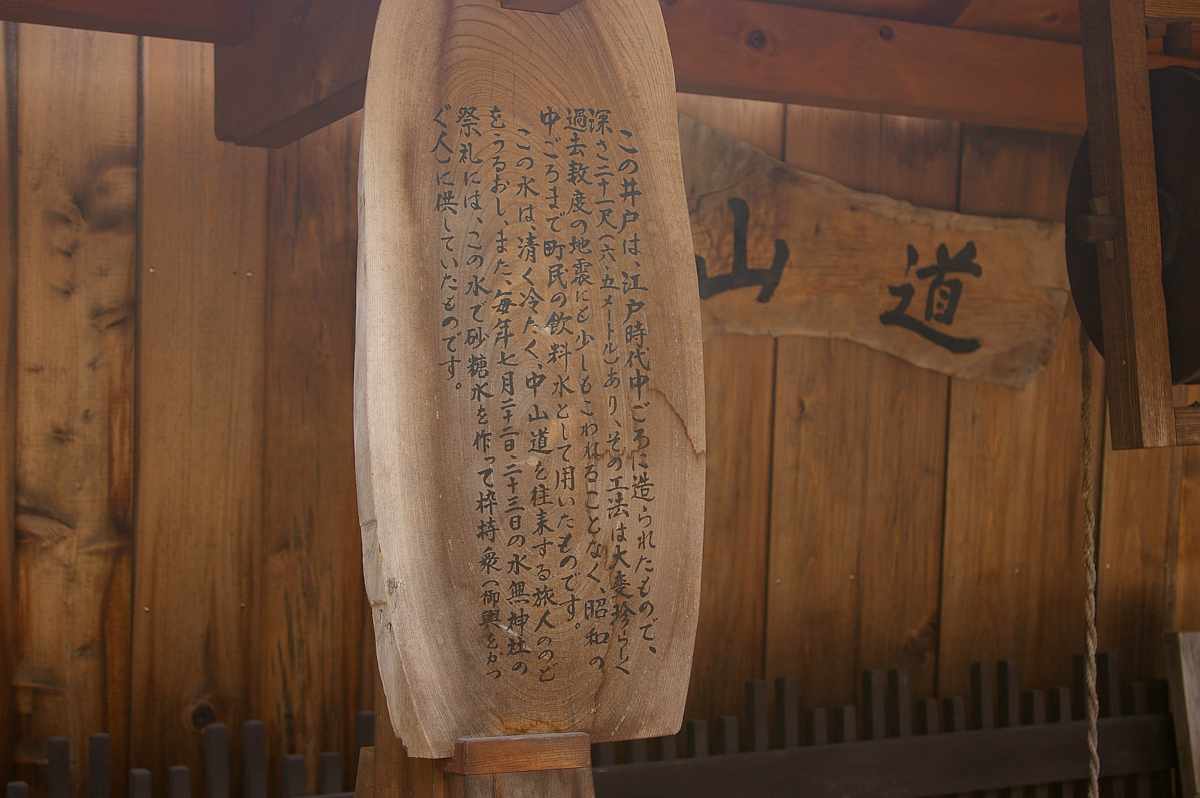 この井戸は、江戸時代中ごろに造られたもので、
深さ二十一尺(六・五メートル)あり、その工法は大変珍らしく
過去数度の地震にも少しもこわれることなく、昭和の
中ごろまで町民の飲料水として用いたものです。
この水は、清く冷たく、中山道を往来する旅人ののど
をうるおし、また、毎年七月二十二日、二十三日の水無神社の
祭礼には、この水で砂糖水を作って枠持衆(御輿をかつ
ぐ人)に供していたものです。
山道